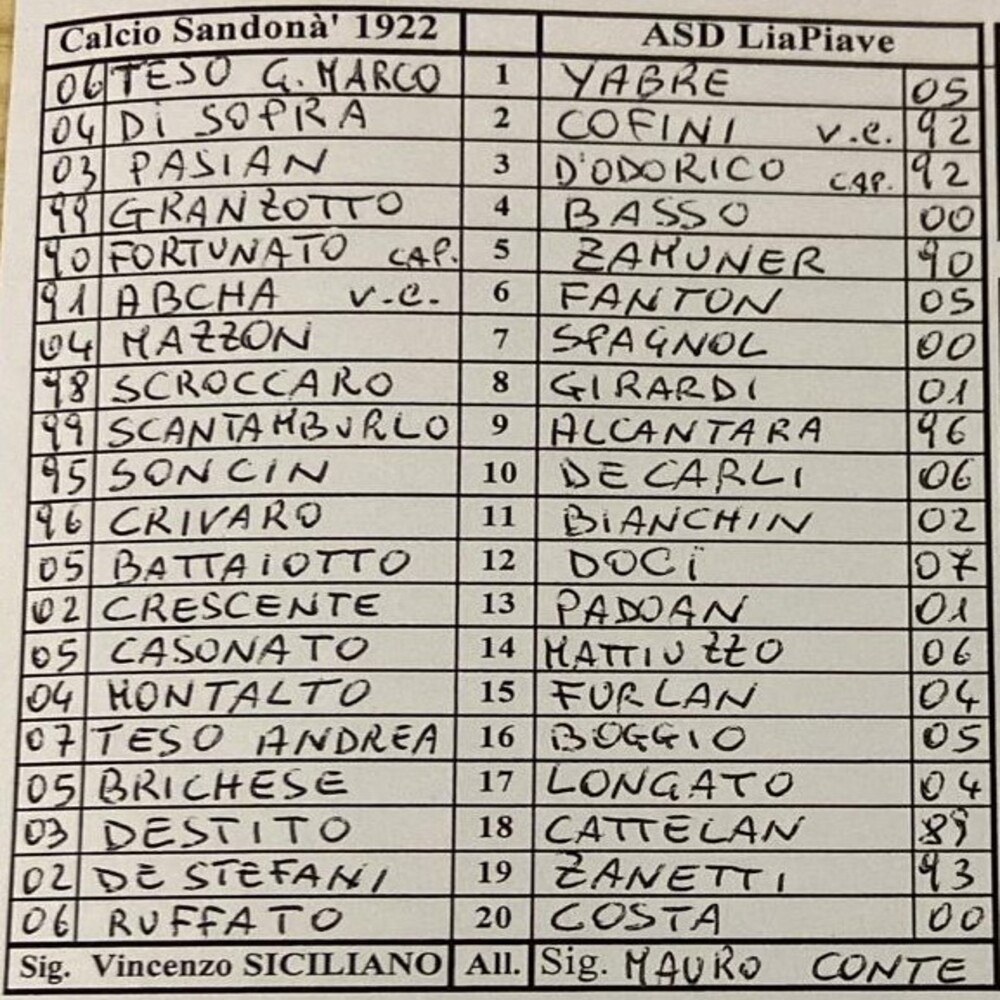 Calcio Sandonà' 1922 ASD LiaPiave
06 TESO G. MARCO 1 YABRE 05
04 Di SOPRA 2 COFINI v.c. 92
03 PASIAN 3 D'ODORICO CAP. 92
99 GRANZOTTO 4 BASSO 00
90 FORTUNATO CAP. 5 ZAMUNER 90
91 ABCHA v.c. 6 FANTON 05
04 MAZZON 7 SPAGNOL 00
98 SCROCCARO 8 GIRARDI 01
99 SCANTAMBURLO 9 ALCANTARA 96
95 SONCIN 10 DE CARLI 06
96 CRIVARO 11 BIANCHIN 02
05 BATTAIOTTO 12 DOCi 07
02 CRESCENTE 13 PADOAN 01
05 CASONATO 14 MATTIUZZO 06
04 MONTALTO 15 FURLAN 04
07 TESO ANDREA 16 BOGGIO 05
05 BRICHESE 17 LONGATO 04
03 DESTITO 18 CATTELAN 89
02 DE STEFANI 19 ZANETTI 93
06 RUFFATO 20 COSTA 00
Sig. Vincenzo SICILIANO All. Sig. MAURO CONTE